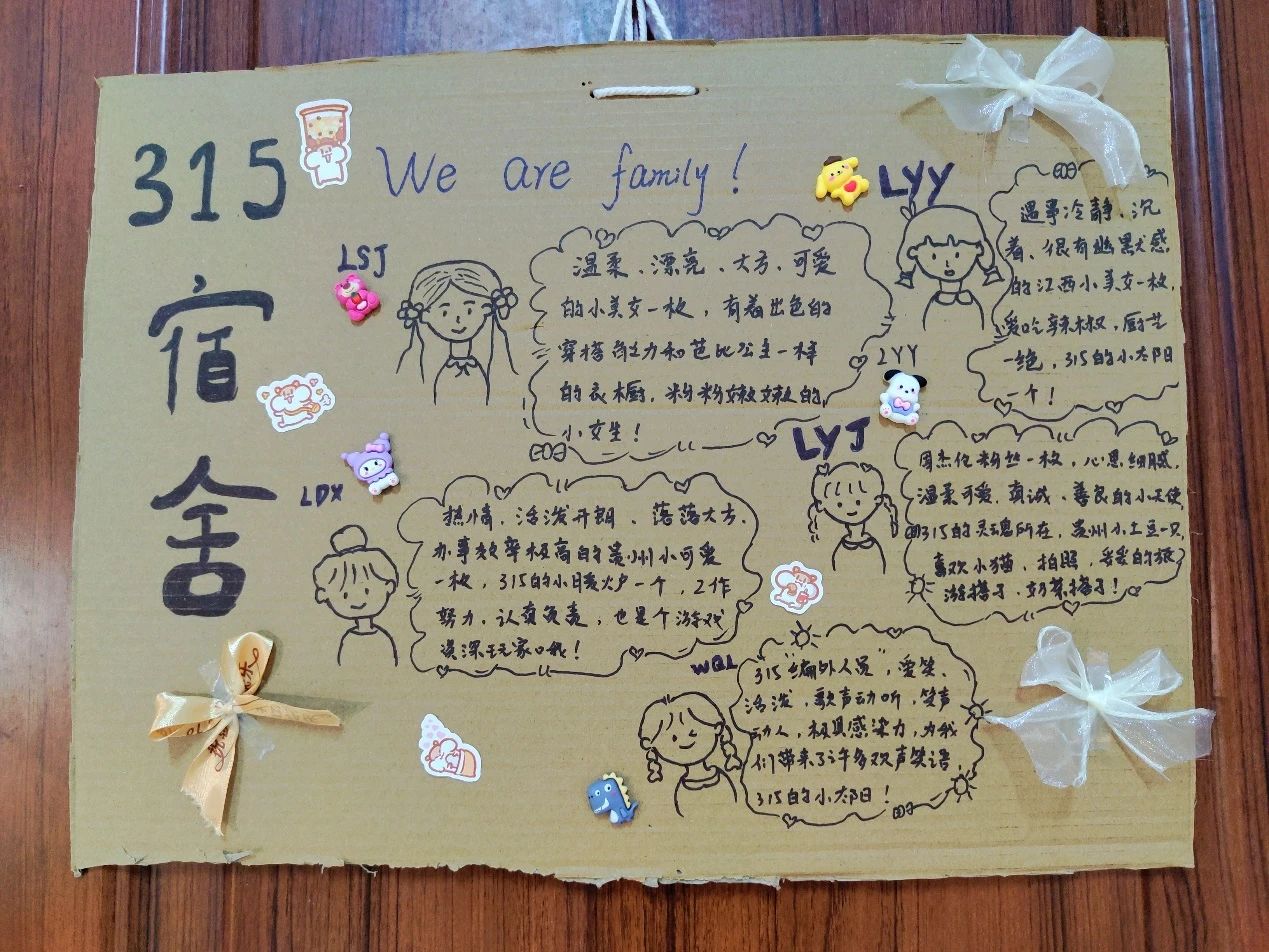 315
宿
舍
We are family!
LSJ
温柔、漂亮、大方、可爱
的小美女一枚，有着出色的
穿搭能力和芭比公主一样
的衣橱，粉粉嫩嫩的
小女生！
LYY
遇事冷静、沉
着、很有幽默感
的江西小美女一枚，
爱吃辣椒，厨艺
一绝，315的小太阳
一个！
LYY
LDX
热情、活泼开朗、落落大方、
办事效率极高的贵州小可爱
一枚，315的小暖炉一个，工作
努力、认真负责，也是个游戏
资深玩家哦！
LYJ
周杰伦粉丝一枚，心思细腻，
温柔可爱、真诚、善良的小天使
315的灵魂所在，贵州小土豆一只，
喜欢小猫、拍照，妥妥的旅
游搭子、奶茶搭子！
WQL
315“编外人员”，爱笑、
活泼，歌声动听，笑声
动人，极具感染力，为我
们带来了许多欢声笑语，
315的小太阳！